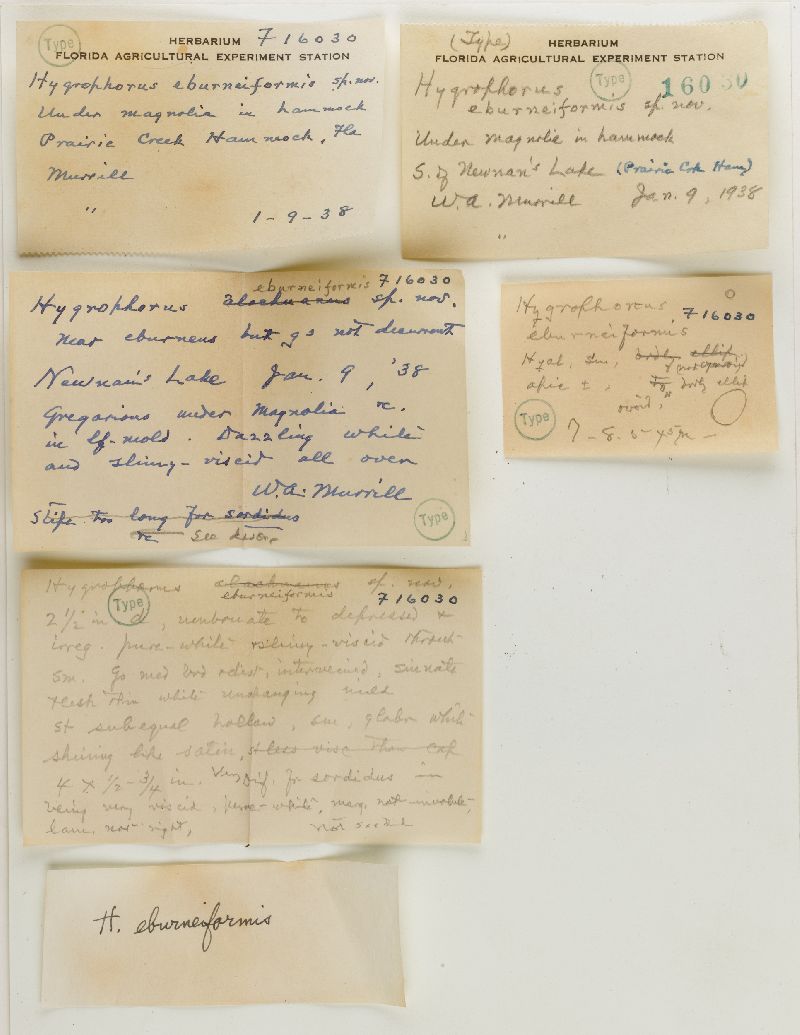 Type
HERBARIUM F16030
FLORIDA AGRICULTURAL EXPERIMENT STATION
Hygrophorus eburneiformis sp. nov.
Under magnolia in hammock
Prairie Creek Hammock, Fla
Murrill
" 1-9-38
(Type) HERBARIUM
FLORIDA AGRICULTURAL EXPERIMENT STATION
Type 16030
Hygrophorus
eburneiformis sp. nov.
Under magnolia in hammock
S. of Newnan's Lake (Prairie Crk Ham)
W.A. Murrill Jan. 9, 1938
"
eburneiformis F16030
Hygrophorus alachuanus sp. nov.
near eburneus but gs not decurrent
Newnan's Lake Jan. 9, '38
Gregarious under Magnolia &c.
in lf-mold. Dazzling white
and slimy-viscid all over
W.A. Murrill
Stipe too long for sordidus
Type
Hygrophorus
F16030
eburneiformis
Hyal, sm,
apic ±,
ovoid,
Type
Hygrophorus alachuanus sp. nov.
eburneiformis
Type F16030
2 1/2 in d, umbonate to depressed &
irreg. pure-white slimy-viscid thruout
sm. Gs med brd dist, interveined, sinuate
flesh thin white unchanging mild
st subequal hollow, sm, glabr white
shining like satin, st less visc than cap
4 x 1/2-3/4 in. Very dif. fr sordidus in
being very viscid, pure-white, marg. not involute,
lam. not
H. eburneiformis